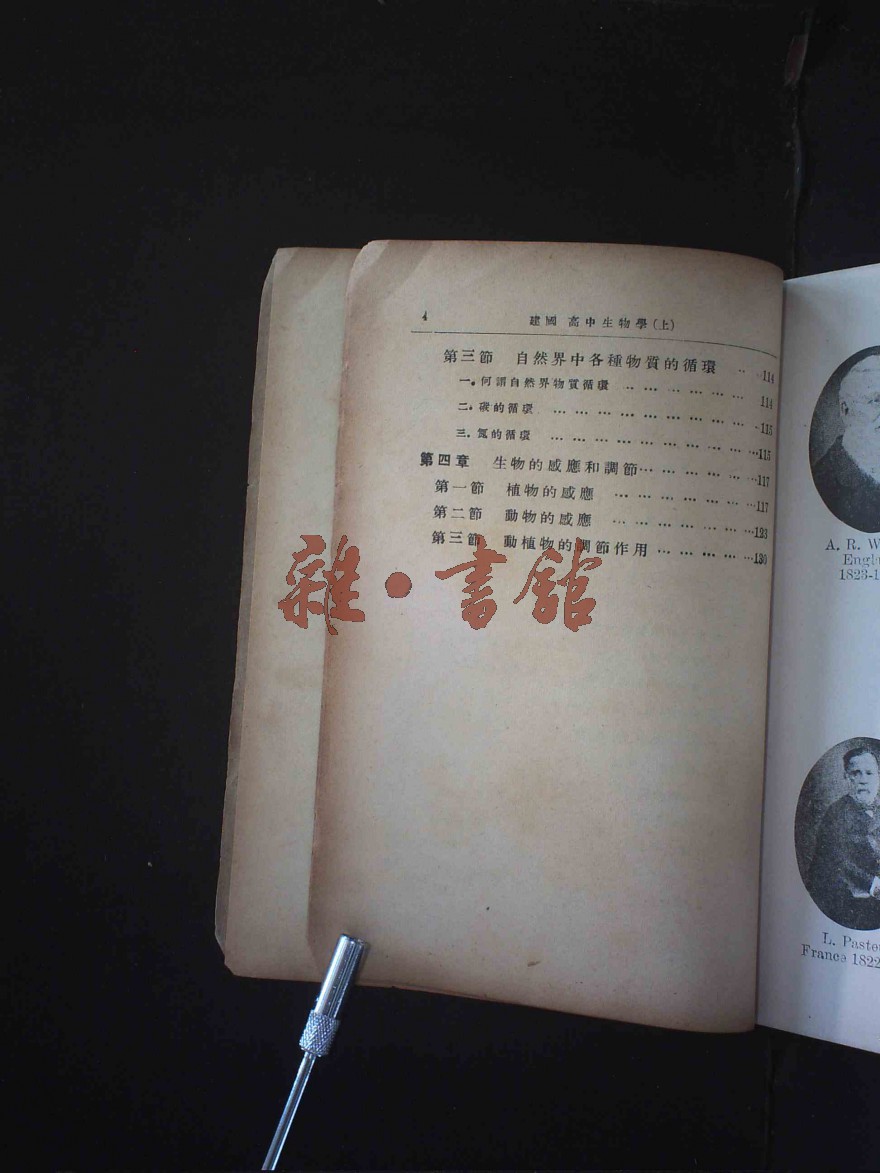 4 建國 高中生物學(上)
第三節 自然界中各種物質的循環 … …114
一. 何謂自然界物質循環 … … … … … … 114
二. 碳的循環 … … … … … … … … …115
三. 氮的循環 … … … … … … … … …115
第四章 生物的感應和調節… … … … … …117
第一節 植物的感應 … … … … … … …117
第二節 動物的感應 … … … … … … …123
第三節 動植物的調節作用 … … … … …130
雜·書館
A. R. W
Engl
1823-1
L. Paste
France 1822